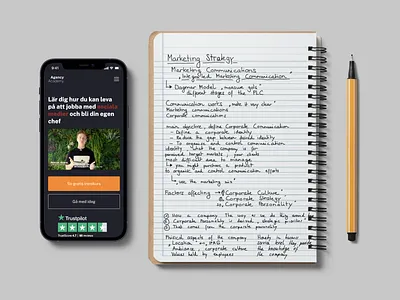 Agency
Academy
Lär dig hur du kan leva
på att jobba med sociala
medier och bli din egen
chef
Se gratis introkurs
Gå med idag
Trustpilot
Marketing Strategy
Marketing Communications
Integrated Marketing Communication
Dagmar Model, massive gaps
different stages of the PLC
Communication works, make it very clear
Marketing communications
Corporate communications
main objective, define Corporate Communication
- Define a corporate identity
- Reduce the gap between brand identity
- To organise and control communication
identity, what the company is for
perceived target markets, your clients
most difficult area to manage
you might purchase a product
to organise and control communication efforts
use the marketing mix
Factors affecting Corporate Culture
Corporate Strategy
Corporate Personality
How a company The way we do things around
Corporate Personality is derived, strategic priorities
This comes from the corporate personality
Physical aspects of the company
Location
Ambience, corporate culture
Values held by employees
the knowledge of
the company